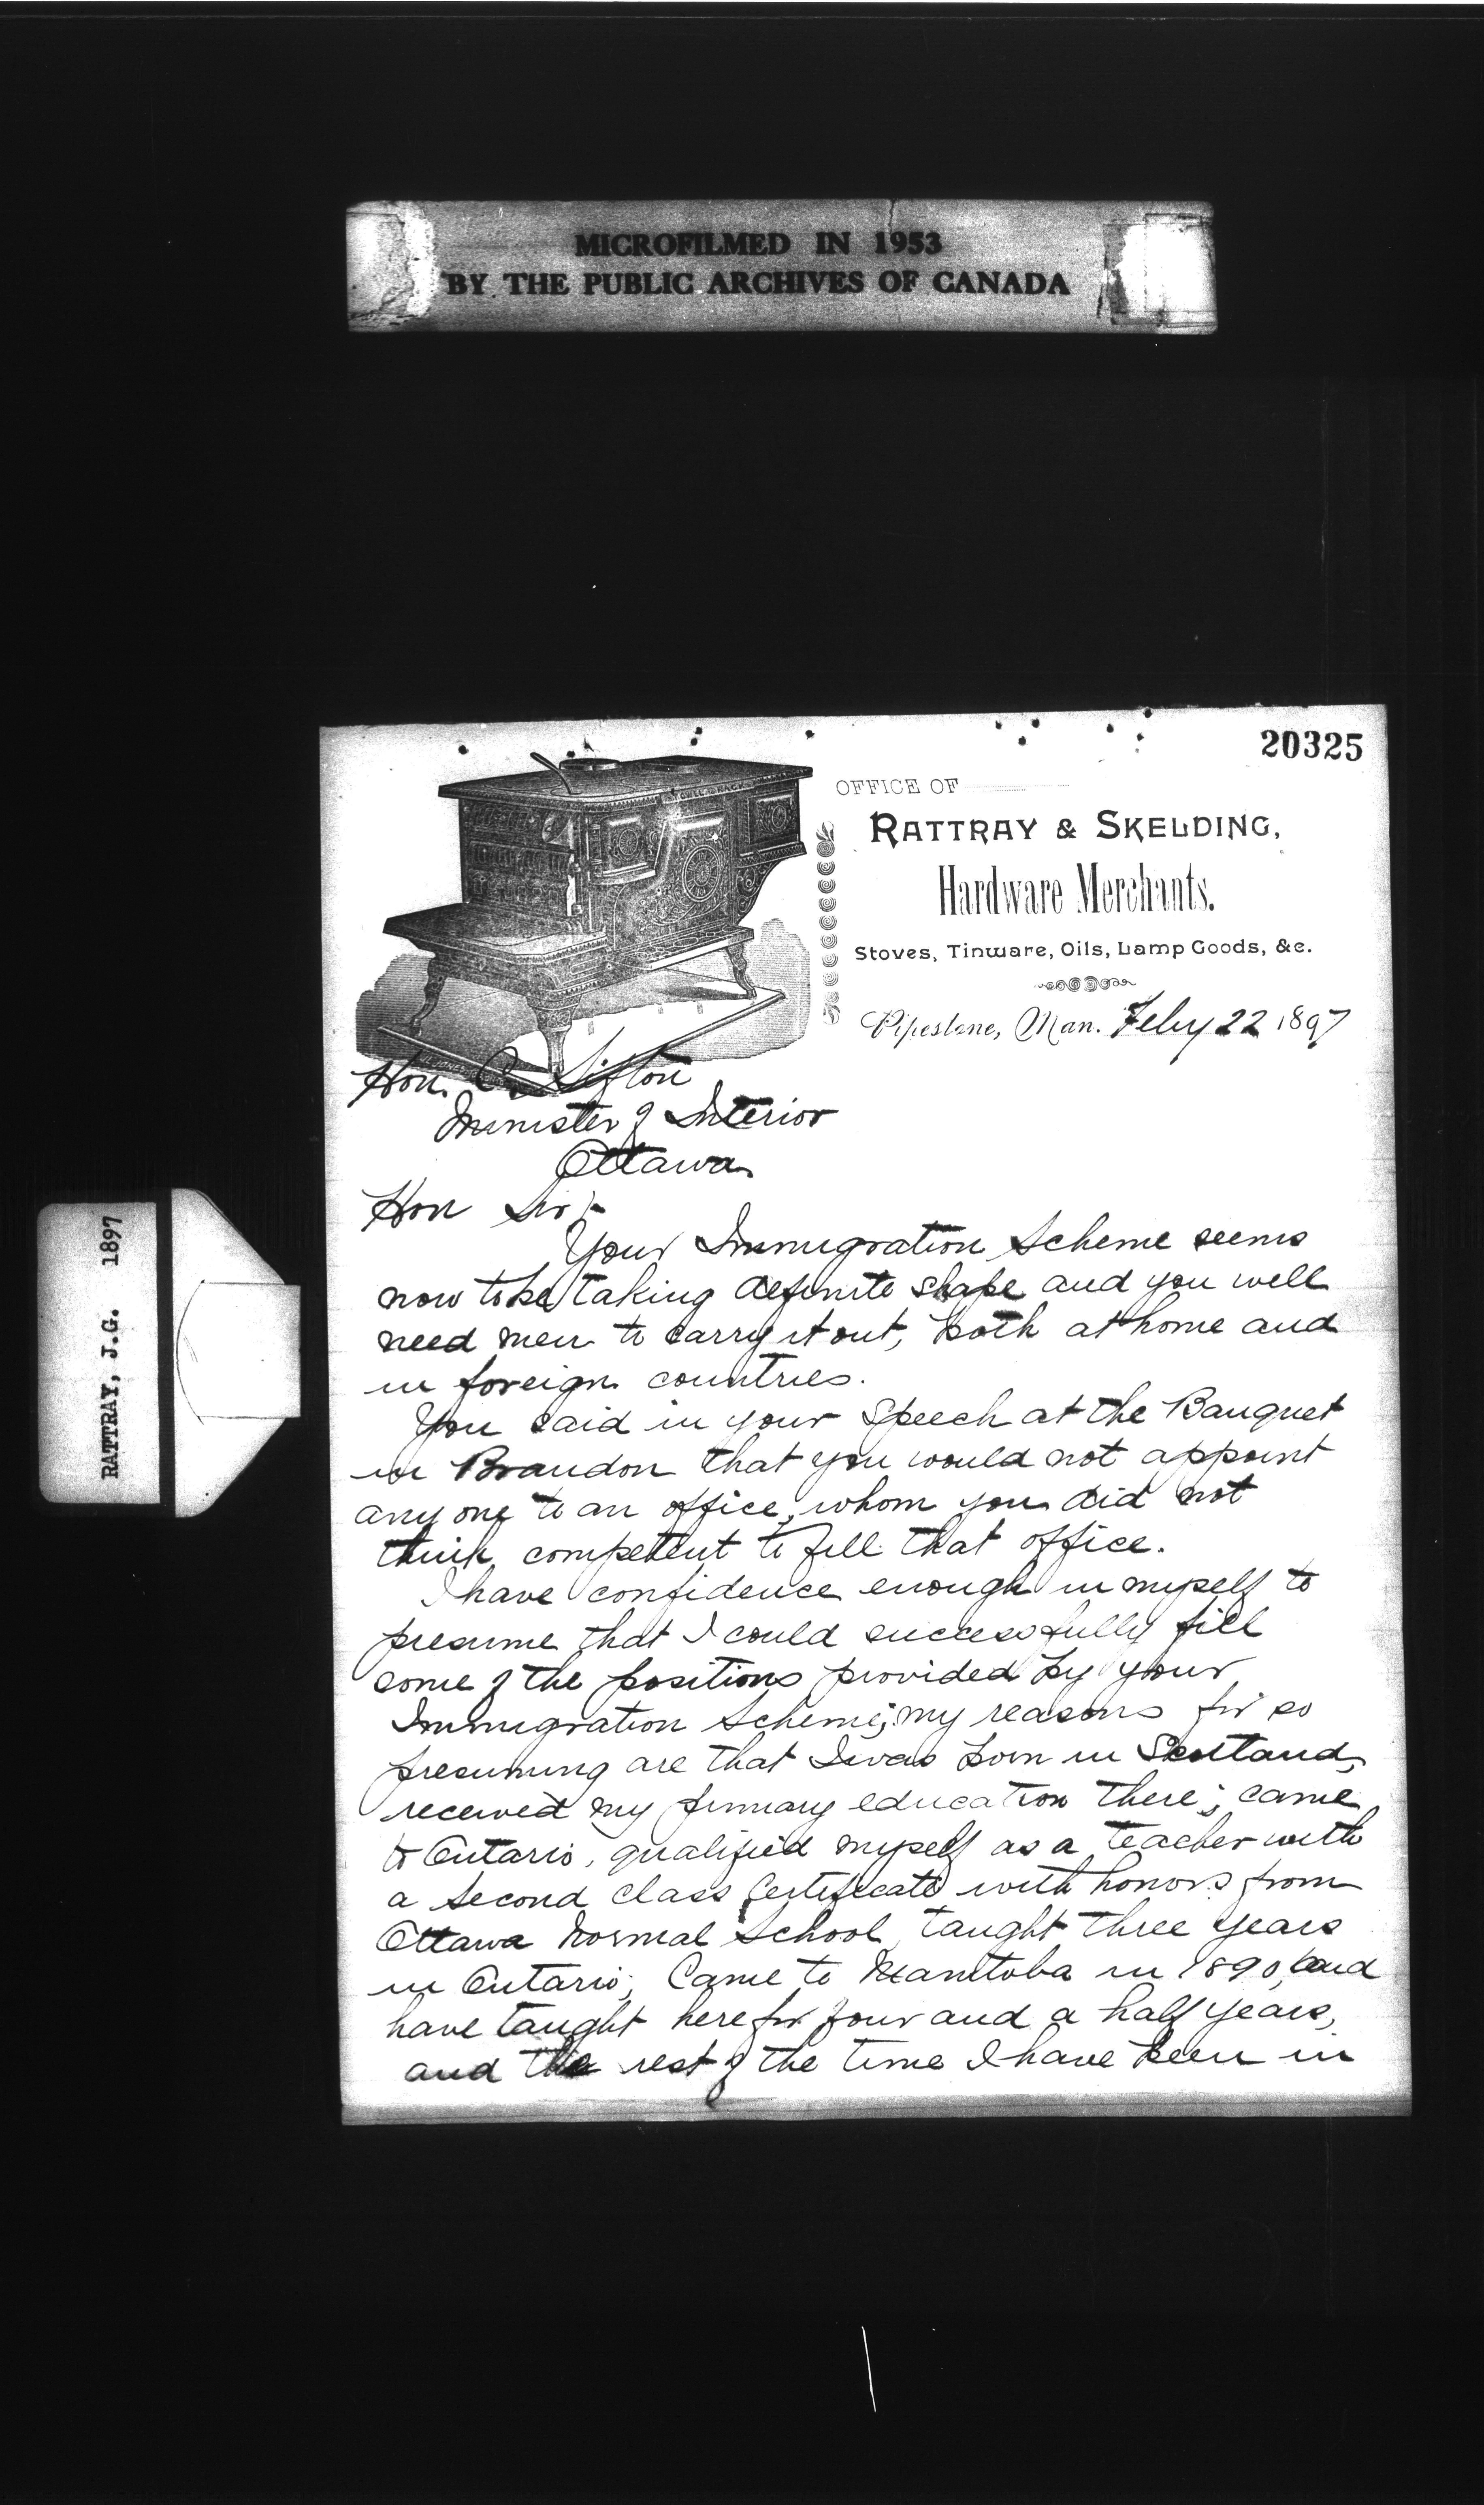 MICROFILMED IN 1953
BY THE PUBLIC ARCHIVES OF CANADA
RATTRAY, J.G. 1897
20325
OFFICE OF
RATTRAY & SKELDING,
Hardware Merchants.
Stoves, Tinware, Oils, Lamp Goods, &c.
Pipestone, Man. Feby 22 1897
Hon. C. Sifton
Minister of Interior
Ottawa
Hon Sir:-
Your Immigration Scheme seems
now to be taking definite shape and you will
need men to carry it out, both at home and
in foreign countries.
You said in your Speech at the Banquet
in Brandon that you would not appoint
any one to an office, whom you did not
think competent to fill that office.
I have confidence enough in myself to
presume that I could successfully fill
some of the positions provided by your
Immigration Scheme; my reasons for so
presuming are that I was born in Scotland,
received my primary education there; came
to Ontario, qualified myself as a teacher with
a second class Certificate with honors from
Ottawa Normal School, taught three years
in Ontario; Came to Manitoba in 1890, and
have taught here for four and a half years,
and the rest of the time I have been in